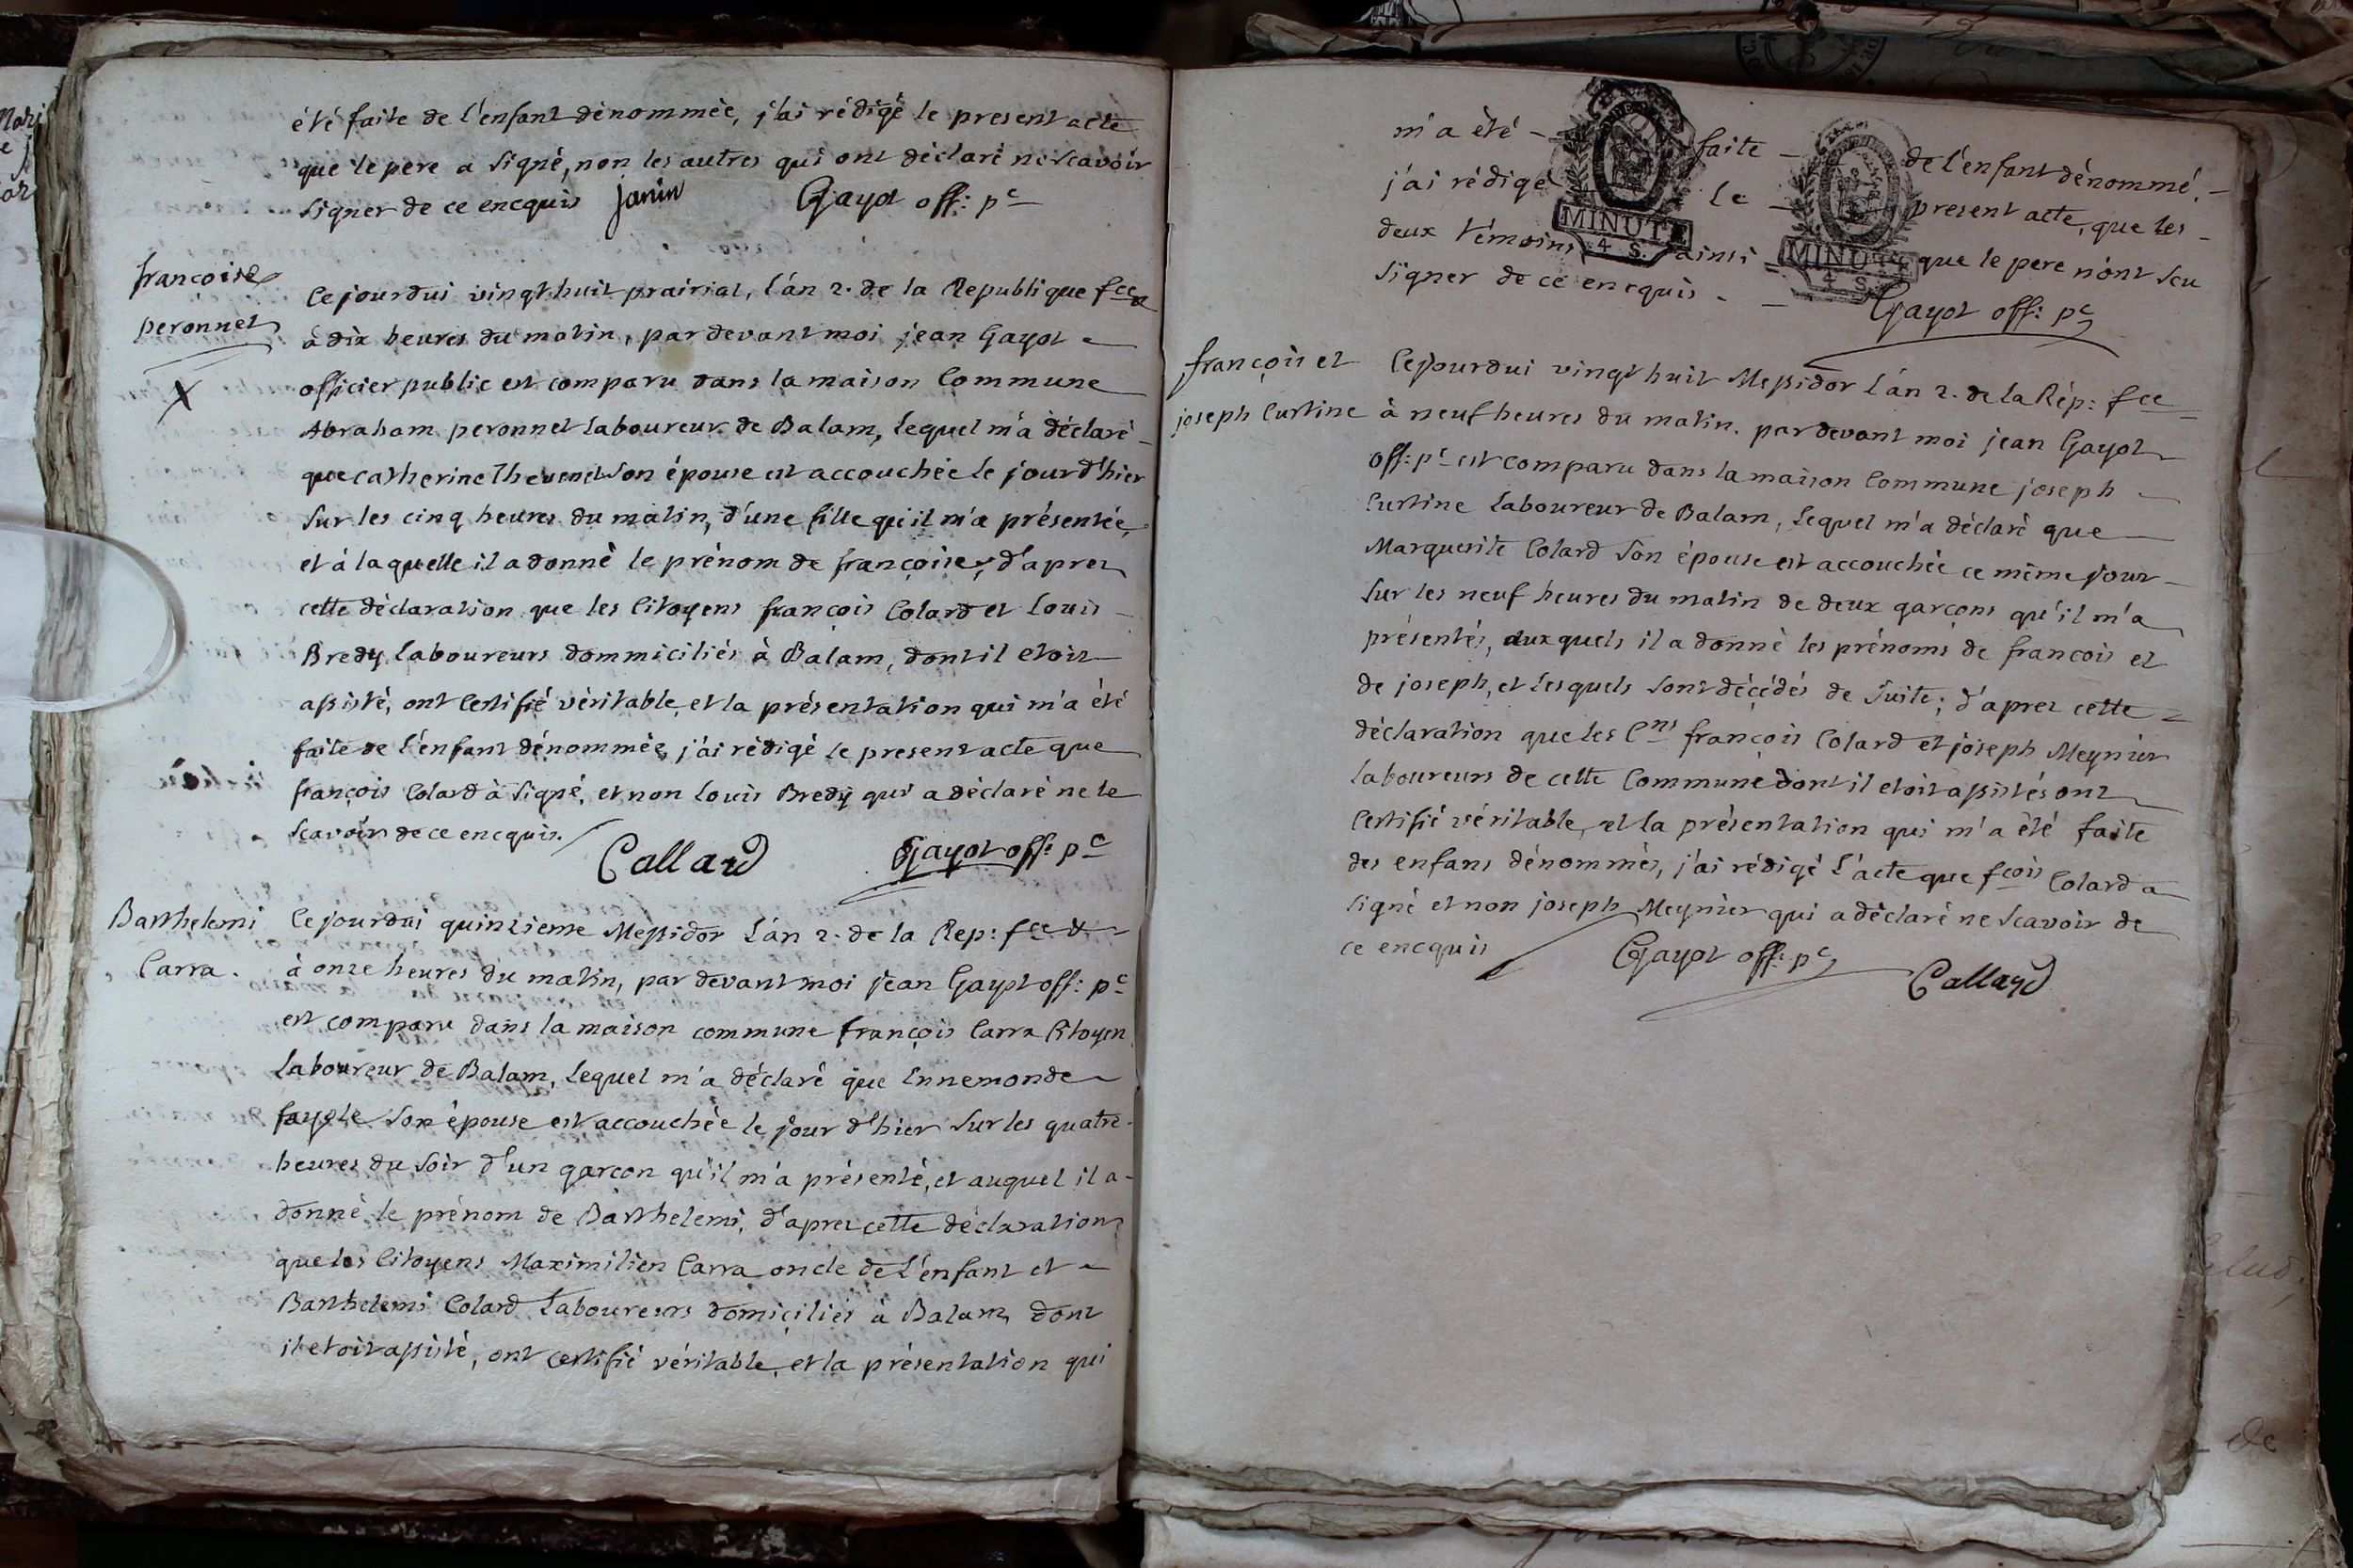 été faite de l'enfant dénommée, j'ai rédigé le present acte
que le pere a signé, non les autres qui ont déclaré ne scavoir
signer de ce encquis janin Gayot off: pc
francoise
peronnet
Cejourdui vingt huit prairial, l'an 2. de la Republique fce
à dix heures du matin, pardevant moi jean Gayot
officier public est comparu dans la maison Commune
Abraham peronnet laboureur de Balam, lequel m'a déclaré
que catherine Thevenet son épouse est accouchée le jour d'hier
sur les cinq heures du matin, d'une fille qu'il m'a présentée,
et à laquelle il a donné le prénom de françoise, d'apres
cette déclaration que les Citoyens françois Colard et Louis
Bredy laboureurs dommiciliés à Balam, dont il etoit
assisté, ont Certifié véritable, et la présentation qui m'a été
faite de l'enfant dénommée, j'ai rédigé le present acte que
françois Colard à signé, et non Louis Bredy qui a déclaré ne le
scavoir de ce encquis.
Callard Gayot off: pc
Barthelemi
Carra.
Cejourdui quinzieme Messidor l'an 2. de la Rep: fce
à onze heures du matin, par devant moi jean Gayot off: pc
est comparu dans la maison commune françois Carra Citoyen
laboureur de Balam, lequel m'a déclaré que Ennemonde
fayole son épouse est accouchée le jour d'hier sur les quatre
heures du soir d'un garcon qu'il m'a présenté, et auquel il a
donné le prénom de Barthelemi, d'apres cette déclaration
que les Citoyens Maximilien Carra oncle de l'enfant et
Barthelemi Colard Laboureurs domiciliés à Balam, dont
il etoit assisté, ont certifié véritable, et la présentation qui
m'a été faite de l'enfant dénommé,
j'ai rédigé le present acte, que les
deux témoins ainsi que le pere n'ont sçu
signer de ce encquis.
MINUTE
4 S.
MINUTE
4 S.
Gayot off: pc
françois et
joseph Curtine
Cejourdui vingt huit Messidor l'an 2. de la Rép: fce
à neuf heures du matin. pardevant moi jean Gayot
off: pc est comparu dans la maison Commune joseph
Curtine Laboureur de Balam, lequel m'a déclaré que
Marguerite Colard son épouse est accouchée ce même jour
sur les neuf heures du matin de deux garçons qu'il m'a
présentés, auxquels il a donné les prénoms de francois et
de joseph, et lesquels sont décédés de suite; d'apres cette
déclaration que les Cns françois Colard et joseph Meynier
laboureurs de cette Commune dont il etoit assistés ont
Certifié véritable, et la présentation qui m'a été faite
des enfans dénommés, j'ai rédigé l'acte que fcois Colard a
signé et non joseph Meynier qui a déclaré ne scavoir de
ce encquis Gayot off: pc Callard